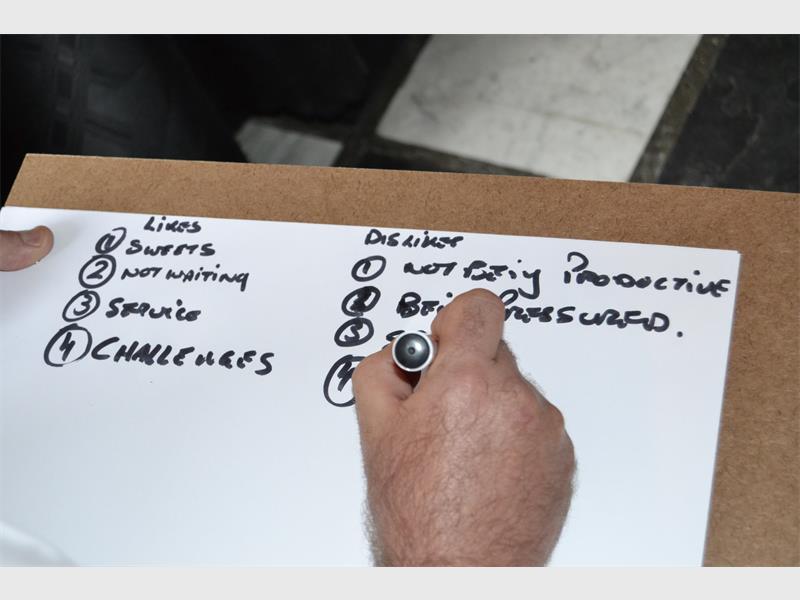 LIKES
1 SWEETS
2 NOT WAITING
3 SERVICE
4 CHALLENGES
DISLIKES
1 NOT BEING PRODUCTIVE
2 BEING PRESSURED.
3
4